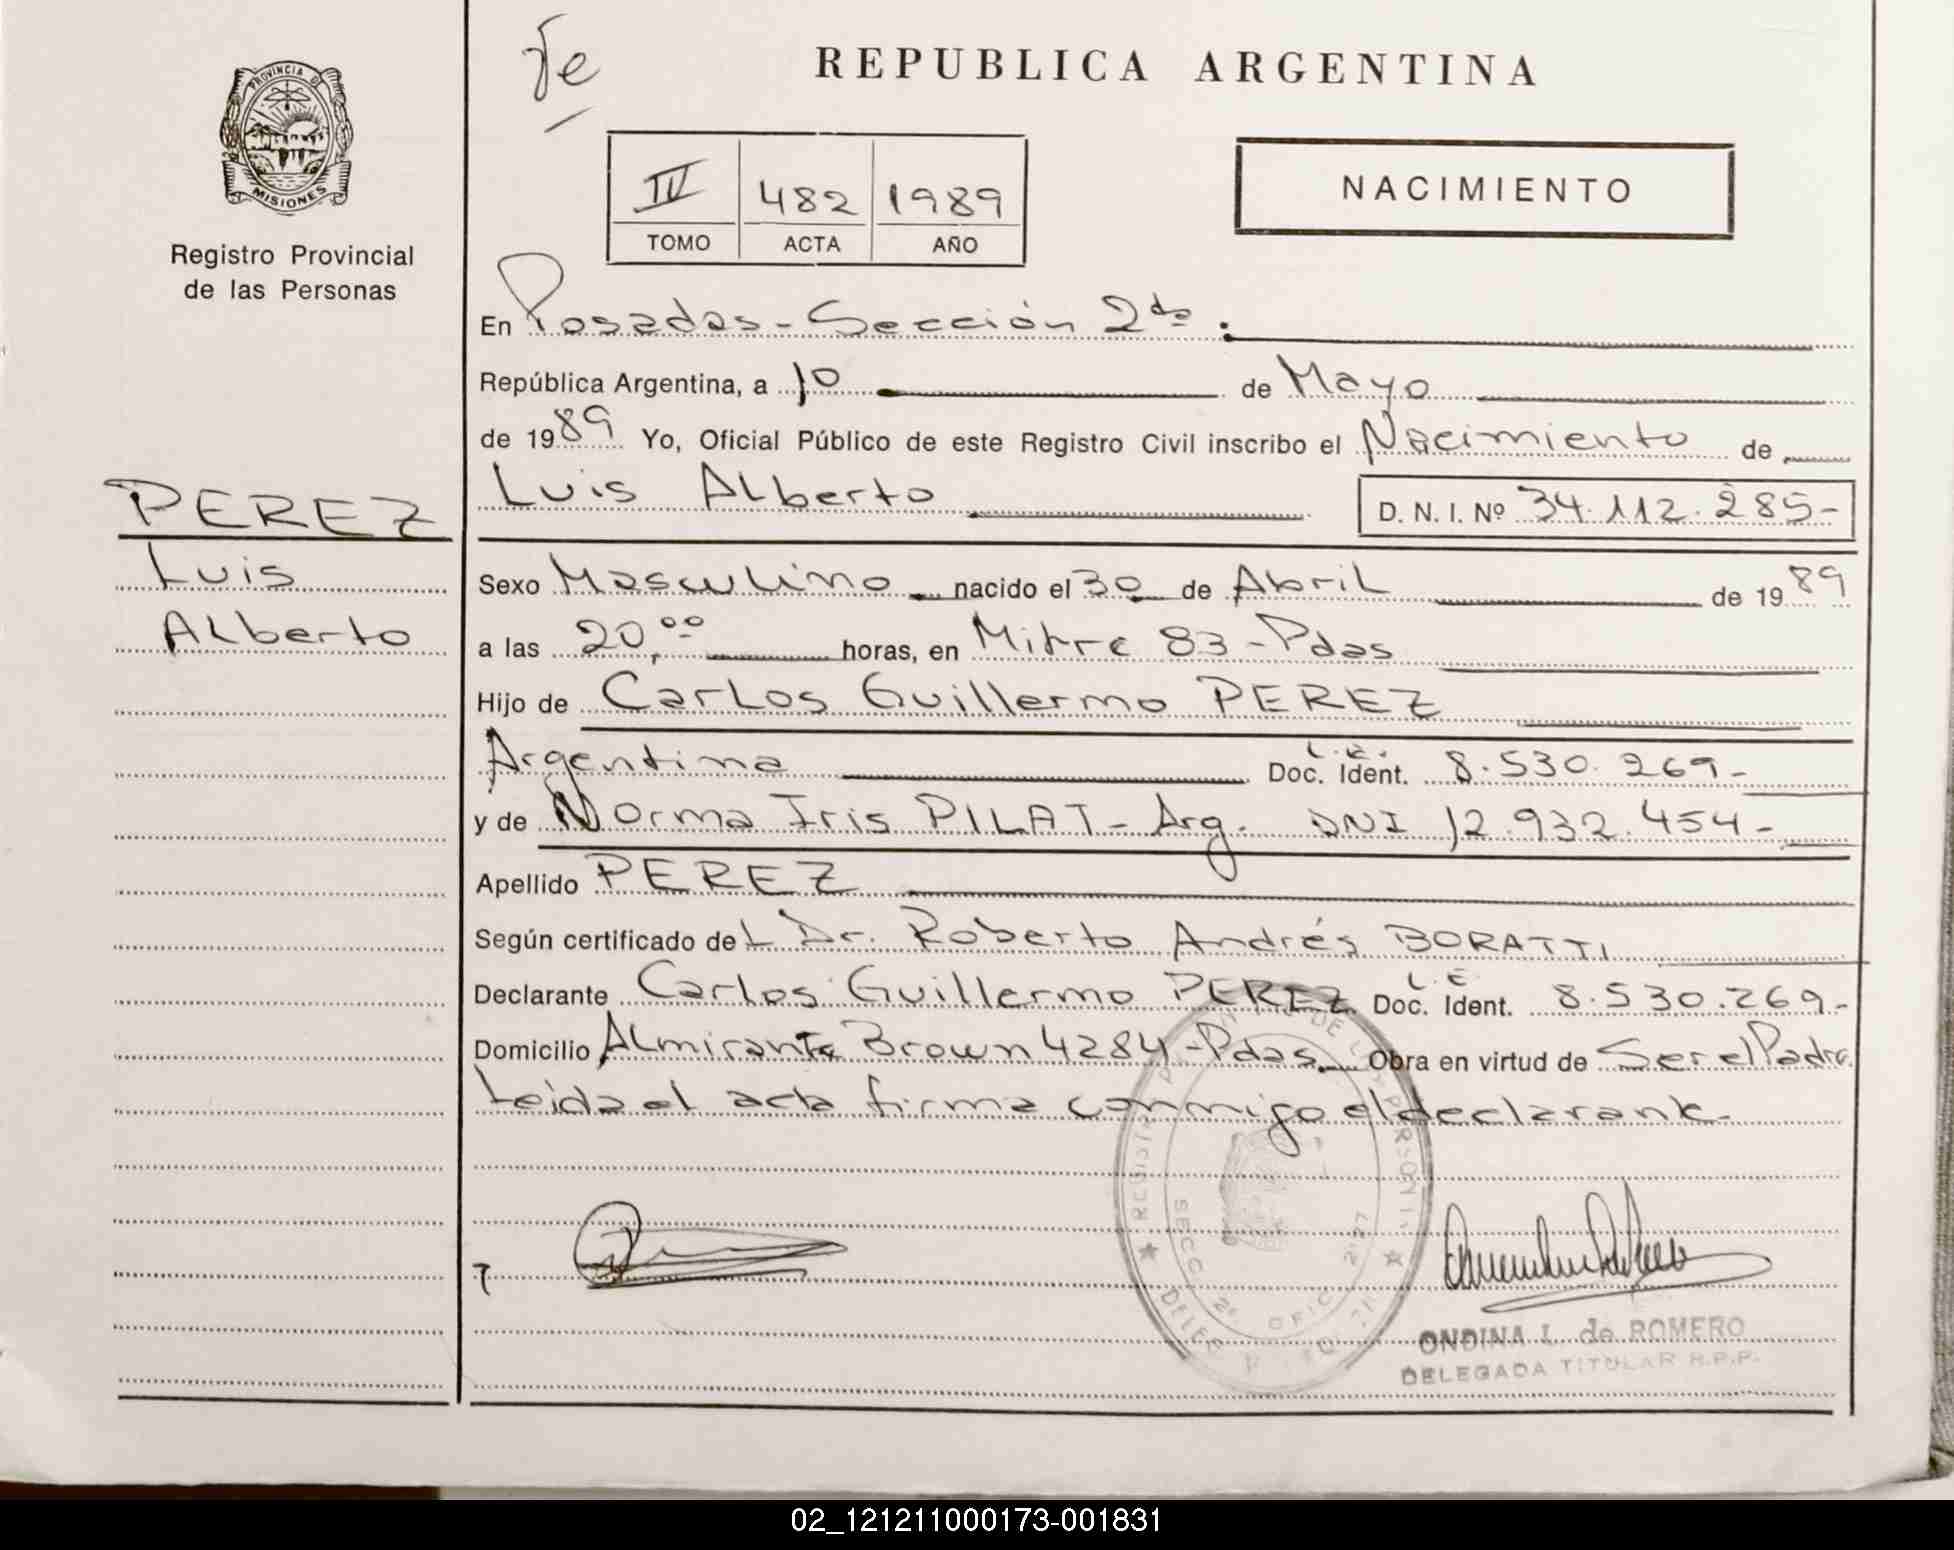 PROVINCIA D
MISIONES
Registro Provincial
de las Personas
PEREZ
Luis
Alberto
REPUBLICA ARGENTINA
IV 482 1989
TOMO ACTA AÑO
NACIMIENTO
En Posadas - Sección 2da.
República Argentina, a 10 de Mayo
de 1989 Yo, Oficial Público de este Registro Civil inscribo el Nacimiento de
Luis Alberto D. N. I. Nº 34.112.285-
Sexo Masculino nacido el 30 de Abril de 1989
a las 20,00 horas, en Mitre 83 - Pdas
Hijo de Carlos Guillermo PEREZ
Argentina L.E. Doc. Ident. 8.530.269-
y de Norma Iris PILAT - Arg. DNI 12.932.454-
Apellido PEREZ
Según certificado del Dr. Roberto Andrés BORATTI
Declarante Carlos Guillermo PEREZ L.E Doc. Ident. 8.530.269-
Domicilio Almirante Brown 4284 - Pdas. Obra en virtud de Ser el Padre.
Leida el acta firma conmigo el declarante.
ONDINA L. de ROMERO
DELEGADA TITULAR R.P.P.
02_121211000173-001831